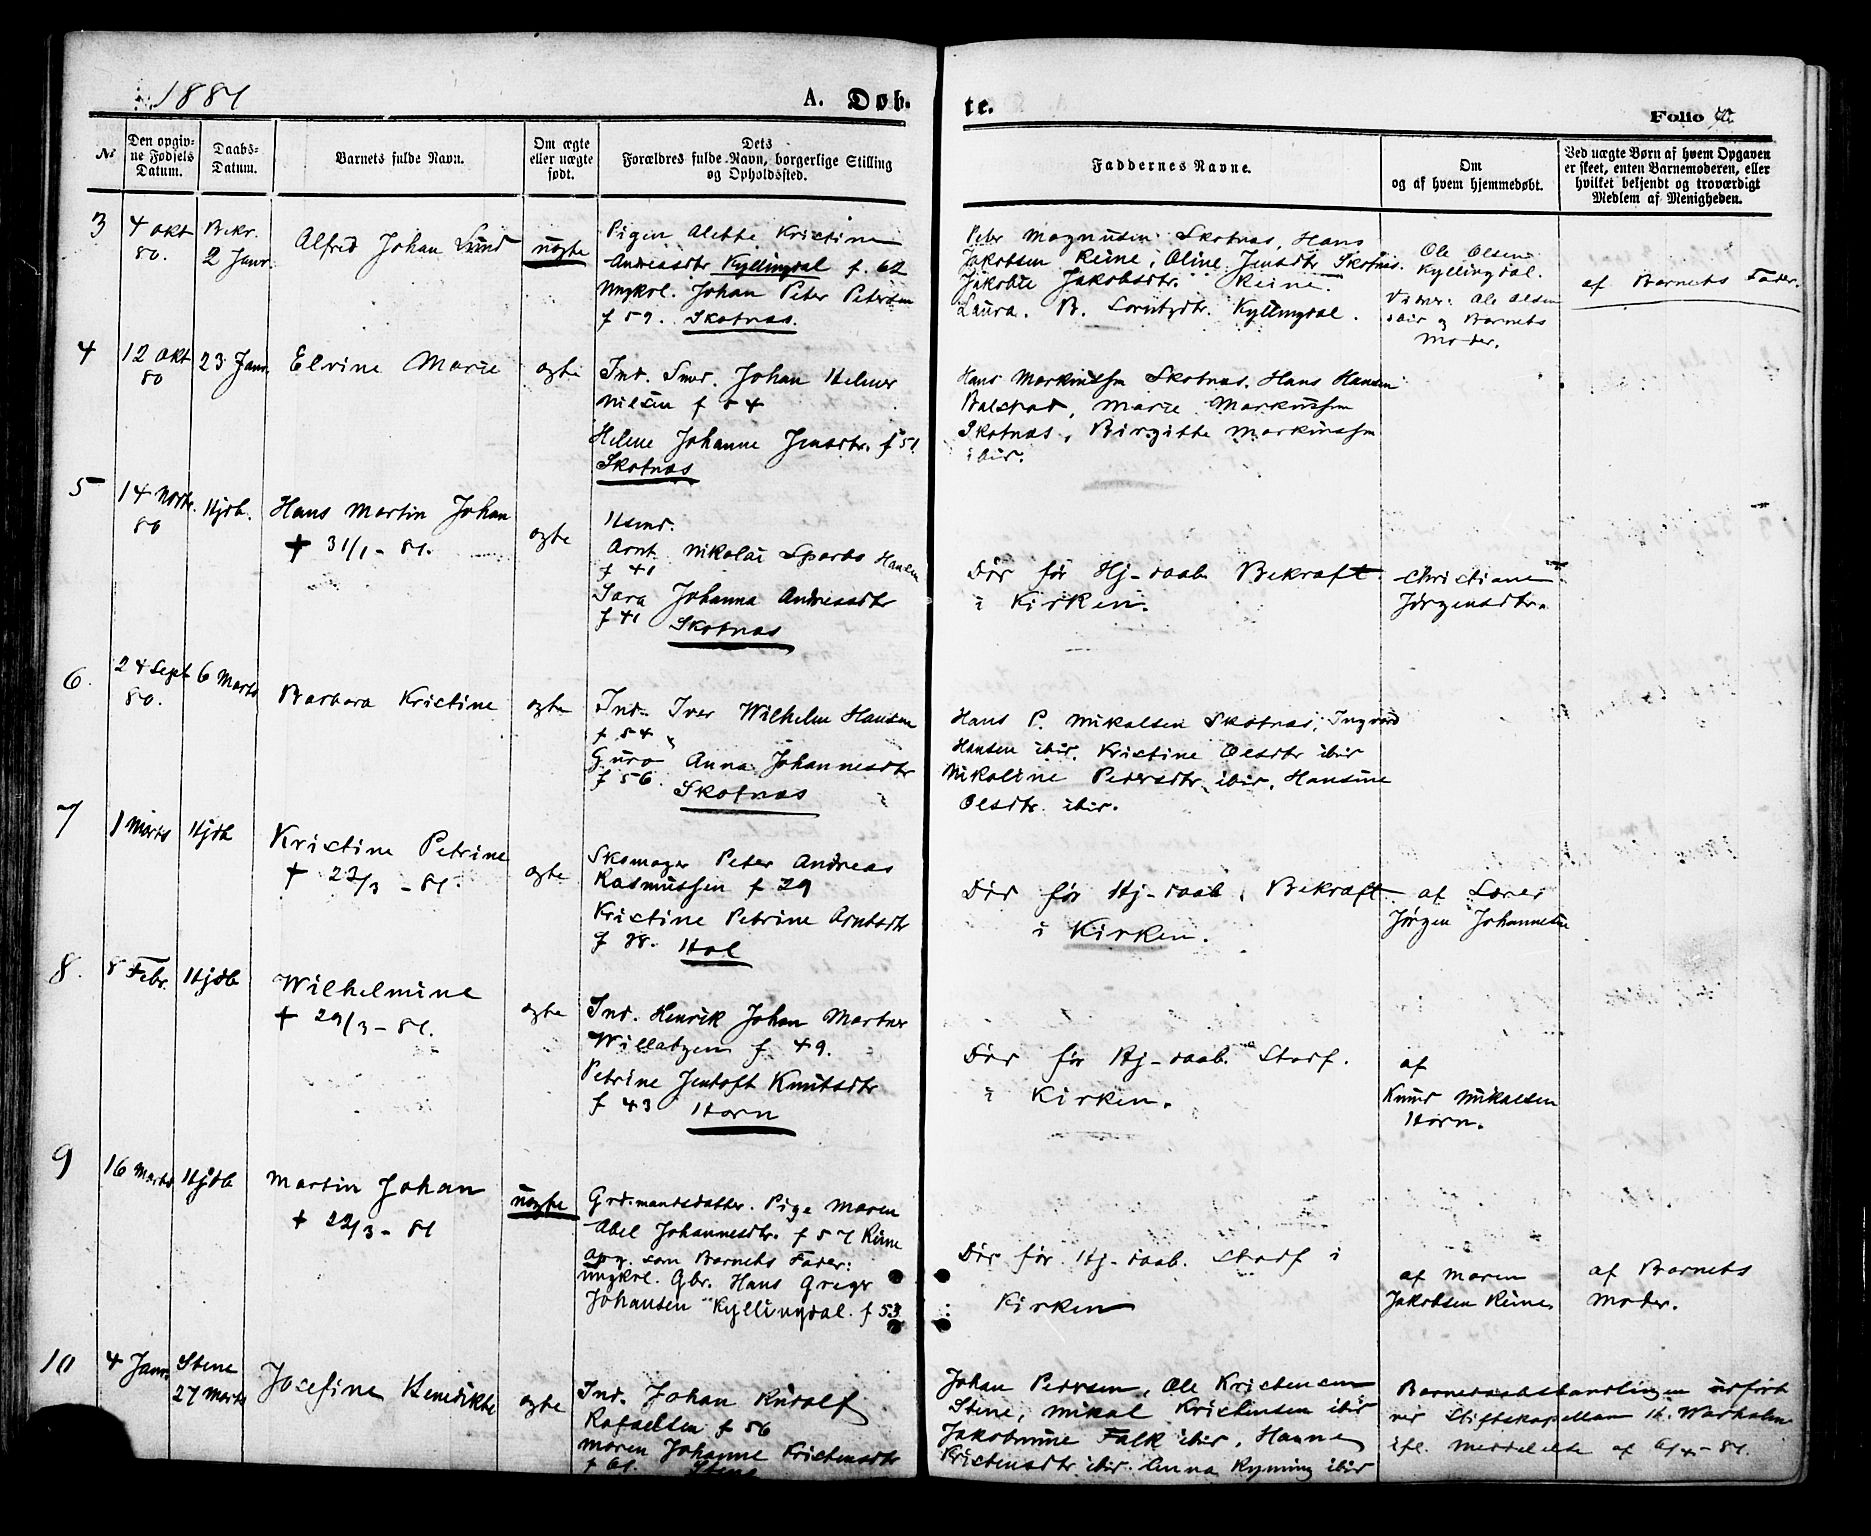 1881
A. Døb.
te.
Folio
№
Den opgiv-
ne Fødsels
Datum.
Daabs-
Datum.
Barnets fulde Navn.
Om ægte
eller uægte
født.
Dets
Forældres fulde Navn, borgerlige Stilling
og Opholdssted.
Faddernes Navne.
Om
og af hvem hjemmedøbt.
Ved uægte Børn af hvem Opgaven
er skeet, enten Barnemoderen, eller
hvilket bekjendt og troværdigt
Medlem af Menigheden.
3
4 Okt
80.
Bekr.
2 Janr
Alfred Johan Lund
uægte
Pigen Alette Kristine
Andreasdtr Kyllingdal f. 62
Ungkrl. Johan Peter Petersen
f 59. Skotnæs.
Peter Magnusen Skotnæs, Hans
Jakobsen Reine, Oline Jensdtr Skotnæs.
Jakobie Jakobsdtr. Reine.
Laura. B. Lorntzdtr. Kyllingdal.
Ole Olsen
Kyllingdal.
Vidner: Ole Olsen
ibir og Barnets
Moder.
af Barnets Fader.
4
12 Okt
80
23 Janr.
Elvine Marie
ægte
Ind. Smd. Johan Helmer
Nilsen f 54
Helene Johanne Jensdtr. f 51
Skotnæs
Hans Markussen Skotnæs, Hans Hansen
Balstad, Marie Markussen
Skotnæs, Birgitte Markussen
ibir.
5
14 Novbr.
80
Hjdb.
Hans Martin Johan
+ 31/1 - 81.
ægte
Hsmd.
Arnt Nikolai Sparbo Hansen
f 41
Sara Johanna Andreasdtr
f 41 Skotnæs
Død før Hj-daab. Bekræft.
i Kirken.
Christiane
Jørgensdtr.
6.
24 Sept
80.
6 Marts
Barbara Kristine
ægte
Ind. Iver Wilhelm Hansen
f 54
Guro Anna Johannesdtr
f 56. Skotnæs
Hans P. Mikalsen Skotnæs, Ingvard
Hansen ibir. Kristine Olsdtr ibir
Nikoline Pedersdtr ibir, Hansine
Olsdtr. ibir.
7
1 Marts
Hjdb
Kristine Petrine
+ 23/3 - 81.
ægte
Skomager Peter Andreas
Rasmussen f 29
Kristine Petrine Arntsdtr
f 38. Hol
Død før Hj-daab. Bekræft
i Kirken.
af Lærer
Jørgen Johannesen
8.
8 Febr.
Hjdb
Wilhelmine
+ 29/3 - 81.
ægte
Ind. Henrik Johan Martner
Willatzen f 49.
Petrine Jentoft Knutsdtr
f 43 Horn
Død før Hj-daab. Stadf.
i Kirken.
af
Knud Mikalsen
Horn.
9
16 Marts
Hjdb
Martin Johan
+ 22/3 - 81
uægte
Grdmandsdatter. Pige Maren
Abel Johannesdtr. f 57 Reine
Opg. som Barnets Fader:
Ungkrl. Gbr. Hans Greger
Johansen Kyllingdal. f 53.
Død før Hj-daab. Stadf i
Kirken
af Maren
Jakobsen Reine.
af Barnets
Moder.
10
4 Janr.
Stene
27 Marts
Josefine Benedikte
ægte
Ind. Johan Rudolf
Rafaelsen f 56
Maren Johanne Kristensdtr
f 61. Stene
Johan Pedersen, Ole Kristensen
Stene, Mikal Kristensen ibir
Jakobmine Falk ibir, Hanne
Kristensdtr ibir. Anna Kyning ibir
Barnedaabshandlingen udført
ved Stiftskapellan H. Warholm
ifl. Meddelelse af 6/4 - 81.